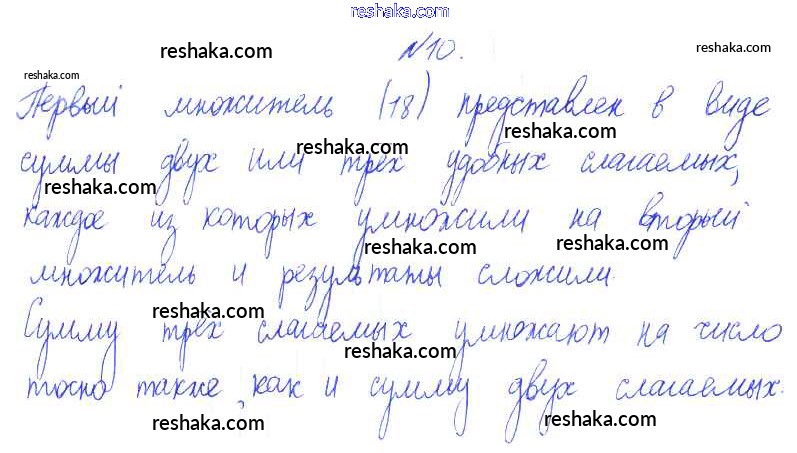 reshaka.com
№10.
reshaka.com
reshaka.com
reshaka.com
Первый множитель (18) представлен в виде
reshaka.com
reshaka.com
суммы двух или трёх удобных слагаемых,
reshaka.com
каждое из которых умножили на второй
reshaka.com
reshaka.com
множитель и результаты сложили.
reshaka.com
Сумму трёх слагаемых умножают на число
reshaka.com
точно также, как и сумму двух слагаемых.
reshaka.com
reshaka.com